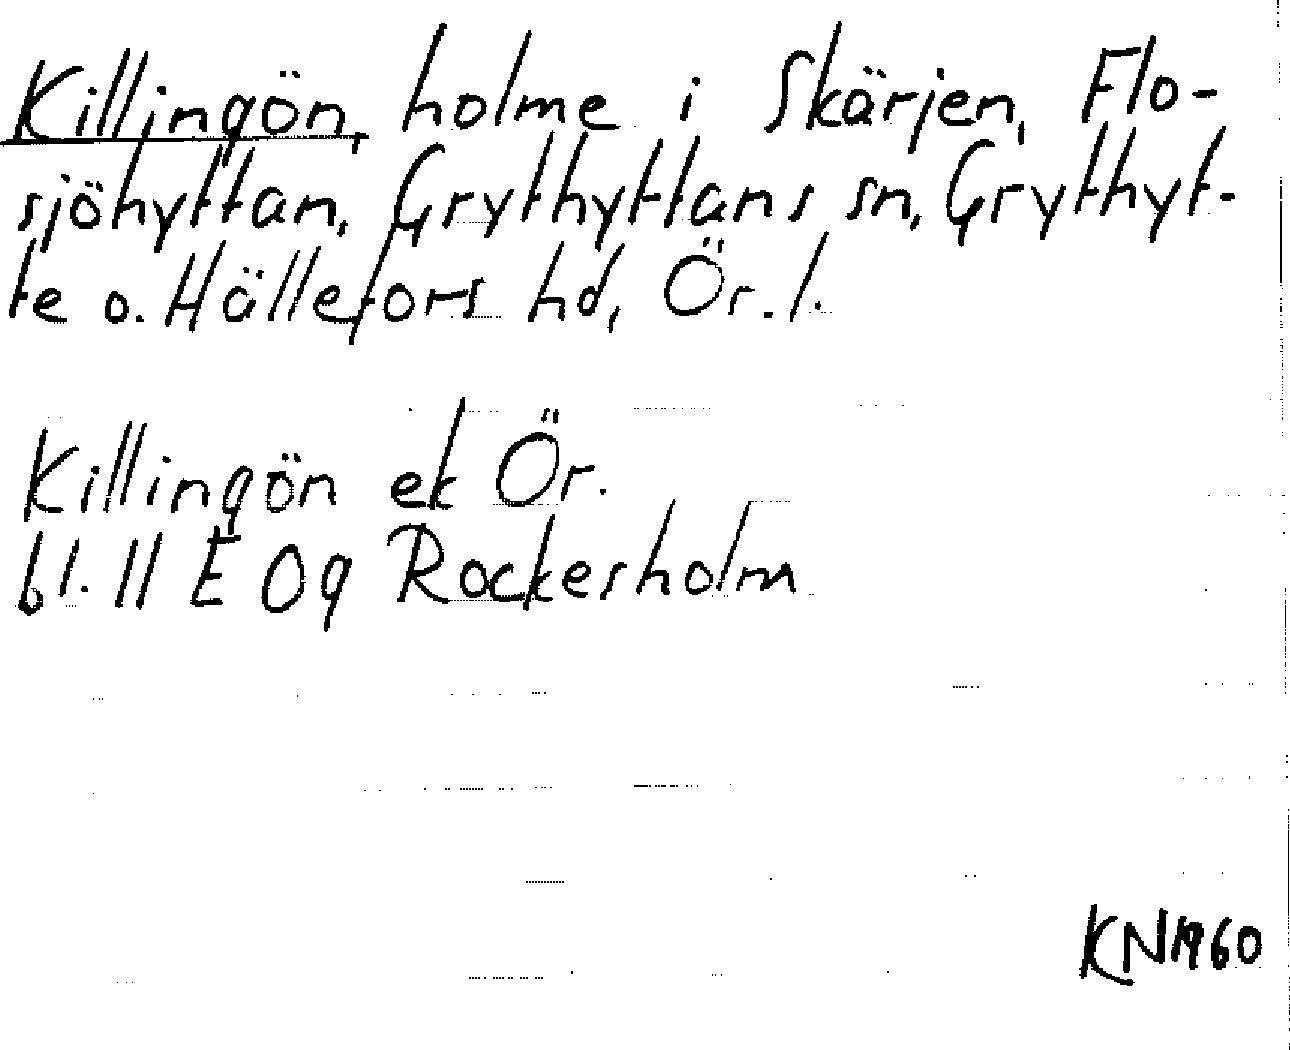 Killingön, holme i Skärjen, Flo-
sjöhyttan, Grythyttans sn, Grythyt-
te o. Hällefors hd, Ör. l.
Killingön ek Ör.
bl. 11 E 0g Rockesholm
KN 1960